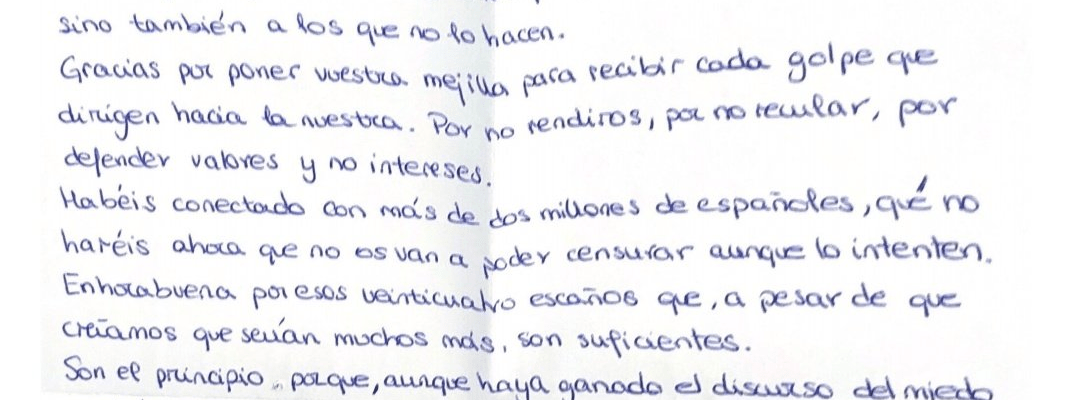 sino también a los que no lo hacen.
Gracias por poner vuestra mejilla para recibir cada golpe que
dirigen hacia la nuestra. Por no rendiros, por no recular, por
defender valores y no intereses.
Habéis conectado con más de dos millones de españoles, qué no
haréis ahora que no os van a poder censurar aunque lo intenten.
Enhorabuena por esos veinticuatro escaños que, a pesar de que
creíamos que serían muchos más, son suficientes.
Son el principio, porque, aunque haya ganado el discurso del miedo